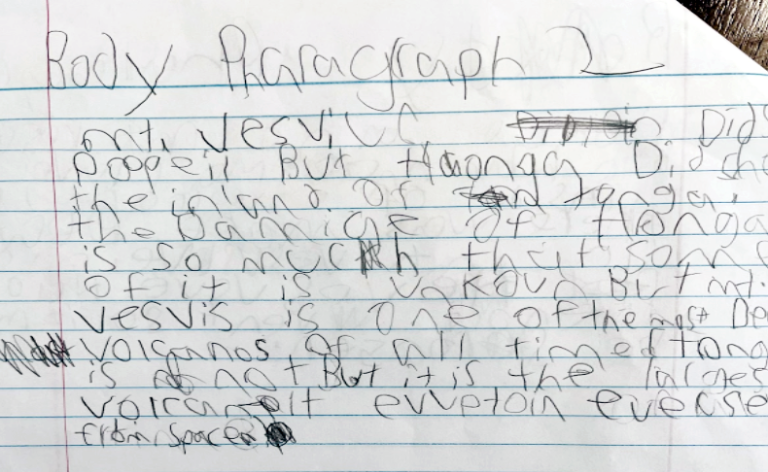 Body Pharagraph 2
mnt. Vesviuc Did
popeii But Hnonga Did
the inland of tonga.
the Damige of Honga
is so much that som
of it is unkoun But mt.
Vesvis is one of the most De
volcanos of all time tong
is not But it is the larges
evvetoin
from space